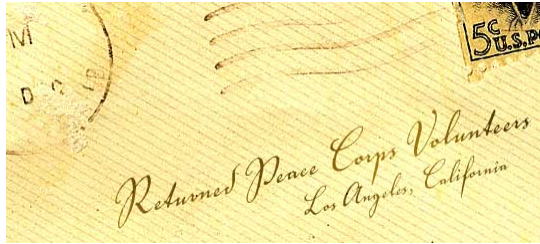 M
5c
U.S.P
D C
Returned Peace Corps Volunteers
Los Angeles, California